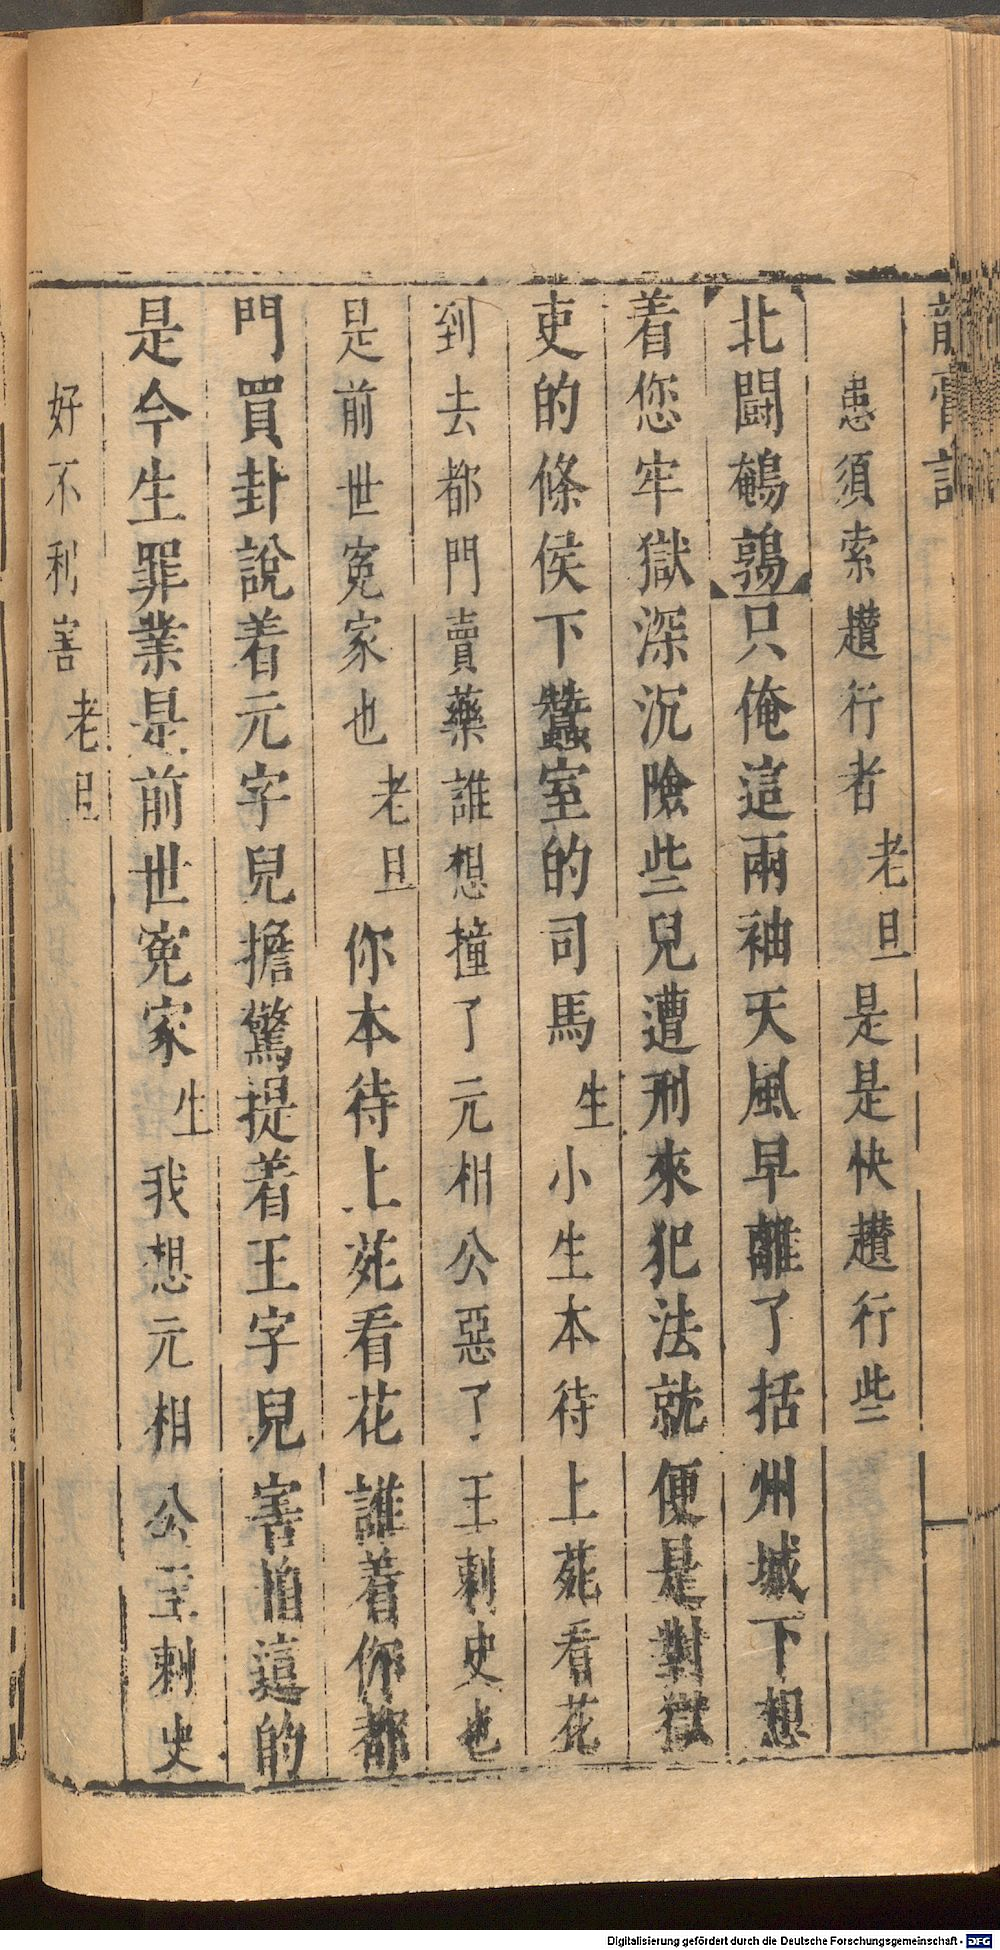 龍膏記
患須索趲行者老旦是是快趲行些
北鬪鵪鶉只俺這兩袖天風早離了括州城下想
着您牢獄深沉險些兒遭刑來犯法就便是對獄
吏的條侯下蠶室的司馬生小生本待上苑看花
到去都門賣藥誰想撞了元相公惡了王刺史也
是前世寃家也老旦你本待上苑看花誰着你都
門買卦說着元字兒擔驚提着王字兒害怕這的
是今生罪業是前世寃家生我想元相公王刺史
好不利害老旦
Digitalisierung gefördert durch die Deutsche Forschungsgemeinschaft - DFG